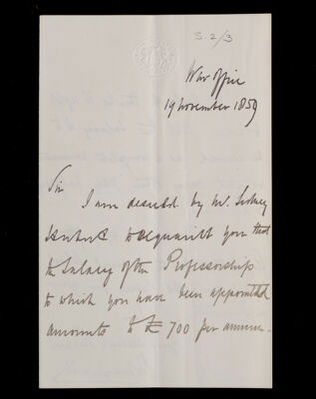 S.2/3
War Office
19 November 1859
Sir
I am desired by Mr. Sidney
Herbert to acquaint you that
the Salary of the Professorship
to which you have been appointed
amounts to £ 700 per annum.